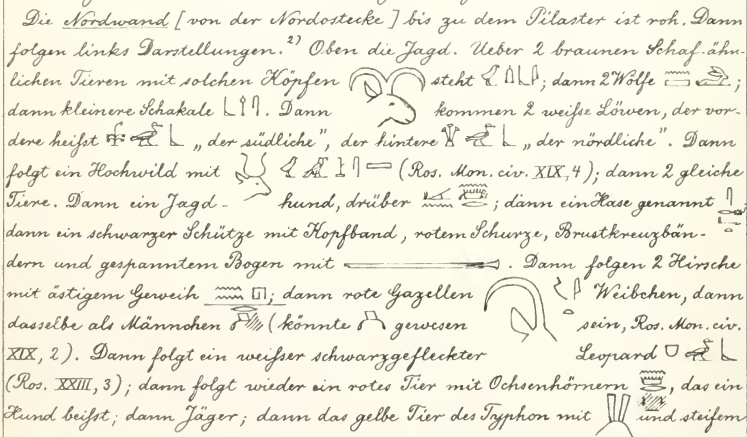 Die Nordwand [von der Nordostecke] bis zu dem Pilaster ist roh. Dann
folgen links Darstellungen.²⁾ Oben die Jagd. Ueber 2 braunen Schaf-ähn-
lichen Tieren mit solchen Köpfen steht ; dann 2 Wölfe ;
dann kleinere Schakale . Dann kommen 2 weiße Löwen, der vor-
dere heißt „der südliche", der hintere „der nördliche". Dann
folgt ein Hochwild mit (Ros. Mon. civ. XIX, 4); dann 2 gleiche
Tiere. Dann ein Jagd- hund, drüber ; dann ein Hase genannt
dann ein schwarzer Schütze mit Kopfband, rotem Schurze, Brustkreuzbän-
dern und gespanntem Bogen mit . Dann folgen 2 Hirsche
mit ästigem Geweih ; dann rote Gazellen Weibchen, dann
dasselbe als Männchen (könnte gewesen sein, Ros. Mon. civ.
XIX, 2). Dann folgt ein weißer schwarzgefleckter Leopard
(Ros. XXIII, 3); dann folgt wieder ein rotes Tier mit Ochsenhörnern , das ein
Hund beißt; dann Jäger; dann das gelbe Tier des Typhon mit und steifem